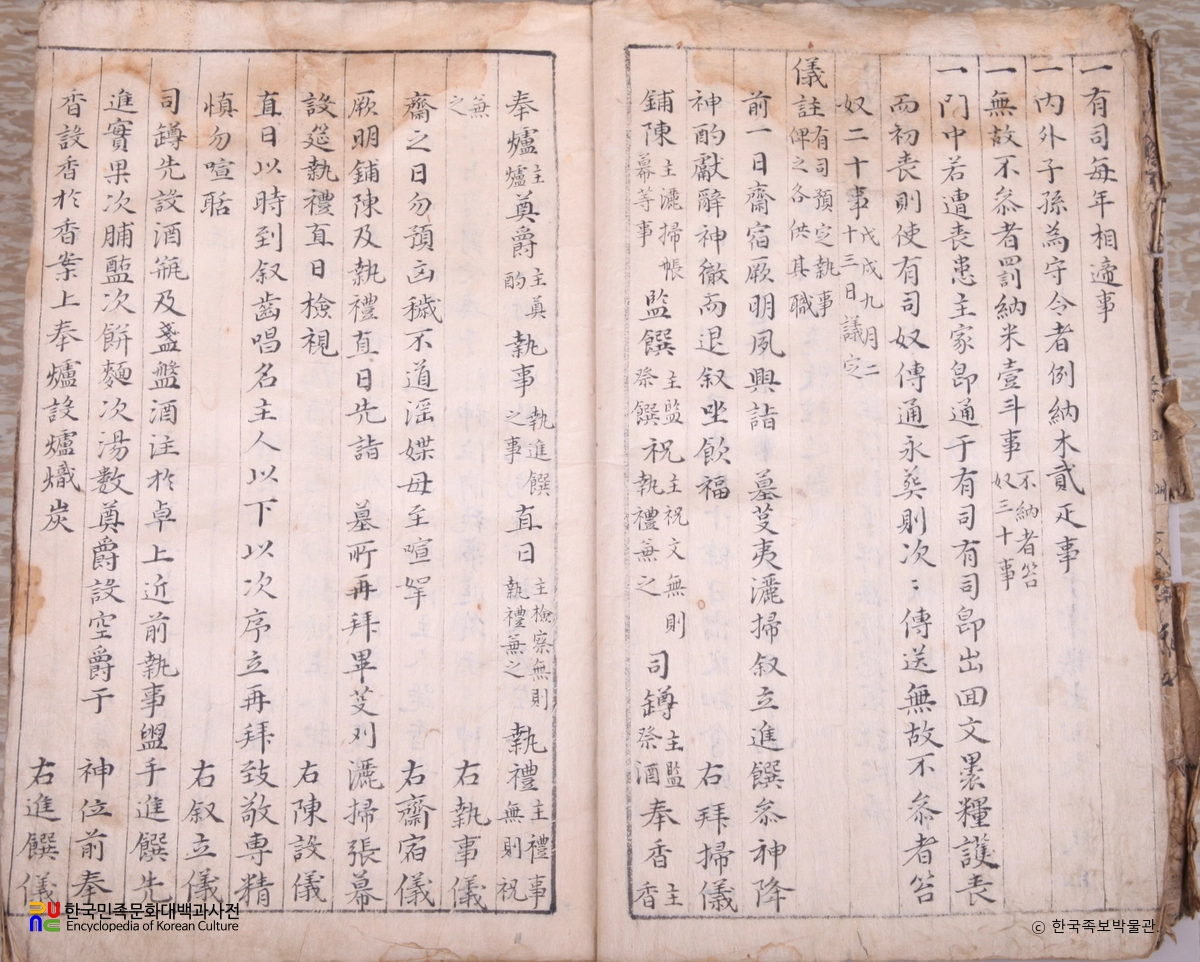 一有司每年相適事
一內外子孫為守令者例納木貳疋事
一無故不叅者罰納米壹斗事 不納者笞奴三十事
一門中若遭喪患主家卽通于有司有司卽出回文裹糧護喪
而初喪則使有司奴傳通永葬則次〻傳送無故不叅者笞
奴二十事 戊戌九月二十三日議定
儀註 有司預定執事俾之各供其職
前一日齋宿厥明夙興詣 墓芟夷灑掃叙立進饌叅神降
神酌獻辭神徹而退叙坐飮福 右拜掃儀
鋪陳 主灑掃帳幕等事 監饌 主監祭饌 祝 主祝文無則執禮兼之 司罇 主監祭酒 奉香 主香
奉爐 主爐 奠爵 主奠酌 執事 執進饌之事 直日 主檢察無則執禮兼之 執禮 主禮事無則祝
兼之 右執事儀
齋之日勿預凶穢不道淫媟毋至喧挐 右齋宿儀
厥明鋪陳及執禮直日先詣 墓所再拜畢芟刈灑掃張幕
設筵執禮直日檢視 右陳設儀
直日以時到叙齒唱名主人以下以次序立再拜致敬專精
愼勿喧聒 右叙立儀
司罇先設酒甁及盞盤酒注於卓上近前執事盥手進饌先
進實果次脯醢次餠麵次湯數奠爵設空爵于 神位前奉
香設香於香案上奉爐設爐熾炭 右進饌儀
한국민족문화대백과사전
Encyclopedia of Korean Culture
ⓒ 한국족보박물관